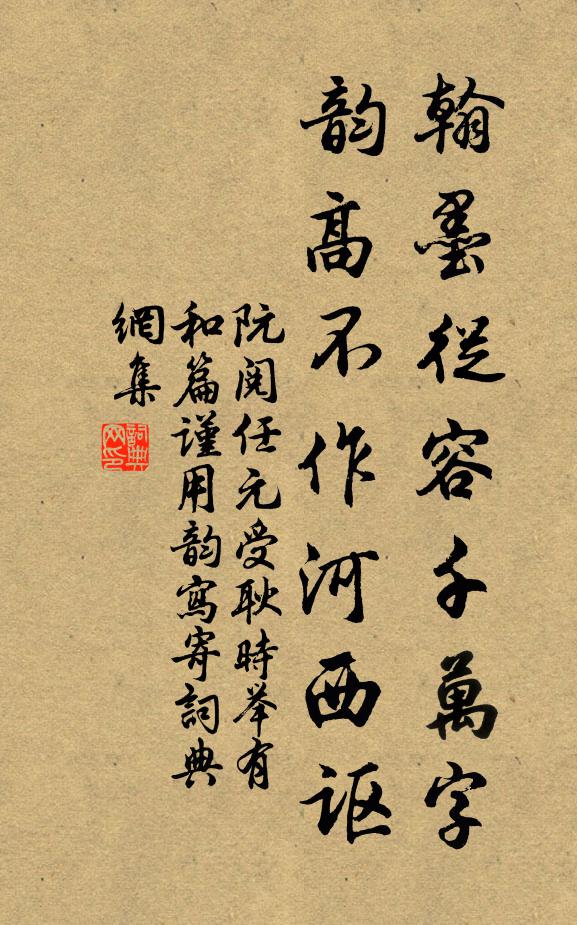 翰墨從容千萬字
韵高不作河西讴
阮閱任元受耿時举有
和篇謹用韵寫寄詞典
網集
詞典
网印